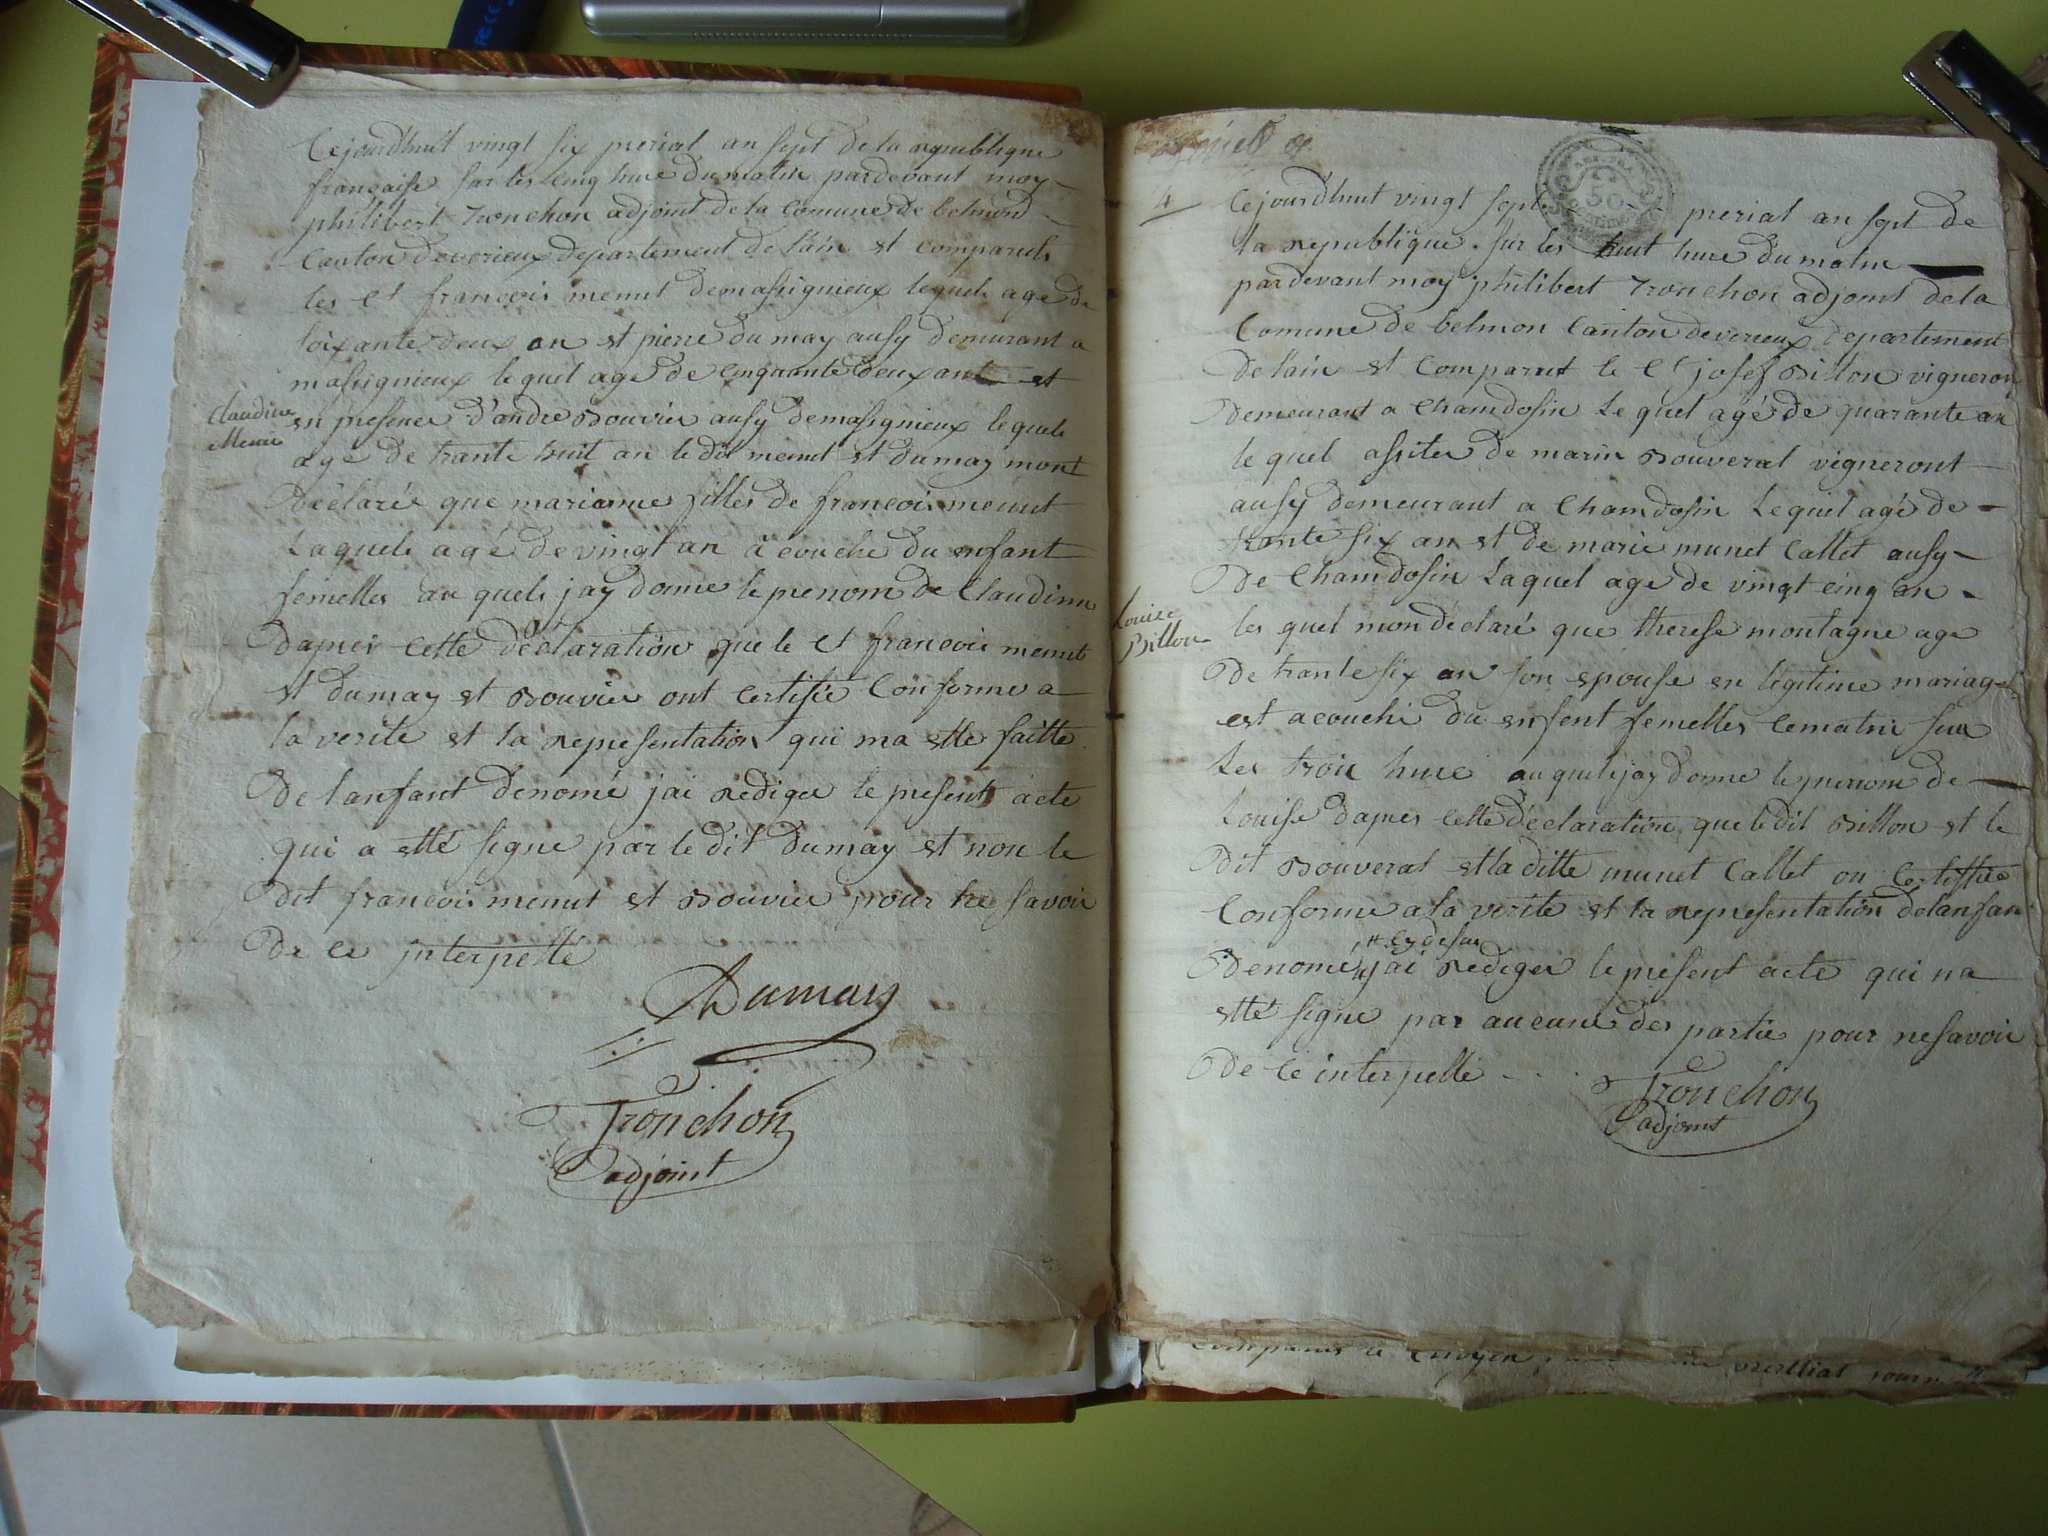 Cejourdhuit vingt six prerial an sept de la republique
francaise sur les cinq hure du matin pardevant moy
philibert Tronchon adjoint de la Comune de belmond
Canton deverieux departement de lain et comparuls
les Ct francois menut demassignieux lequels age de
soixante deux an et pierre dumay ausy demurant a
massignieux lequel age de cinquante deux ant et
Claudine
Menu
en presence d'andre Bouvier ausy demasignieux lequels
age de trante huit an le dit menut et dumay mont
declaré que marianne filles de francois menut
Laquels agé de vingt an a couche du enfant
femelles au quels jay donne le prenom de Claudinne
dapres cette déclaration que le Ct francois menut
et dumay et Bouvier ont certifié Conforme a
la verite et la representation qui ma ette faitte
de lanfant dénomé jai rediger le present acte
qui a etté signe par le dit dumay et non le
dit francois menut et Bouvier pour ne savoir
de ce interpellé
Dumay
Tronchon
adjoint
4
Cejourdhuit vingt sept prerial an sept de
la republique sur les huit hure du matin
pardevant moy philibert Tronchon adjoint de la
Comune de belmon Canton deverieux departement
de lain et comparut le Ct josef Billon vigneron
demeurant a Chamdosin Le quel agé de quarante an
le quel assiter de marin Bouverat vigneront
ausy demeurant a Chamdosin Lequel agé de
trante six an et de marie munet Callet ausy
de Chamdosin Laquel age de vingt cinq an
Louise
Billon
les quel mon déclaré que therese montagne age
de trante six an son epouse en légitime mariage
est acouché du enfent femelles cematin sur
Les troir hure au quels jay donne le prenom de
Louise dapres cette déclaration que le dit Billon et le
dit Bouverat et la ditte munet Callet on Certiffié
Conforme a la verite et la representation de lanfan
cy desur
denomé jai rediger le présent acte qui na
etté signe par aucune des partie pour ne savoir
de ce interpellé
Tronchon
adjoint